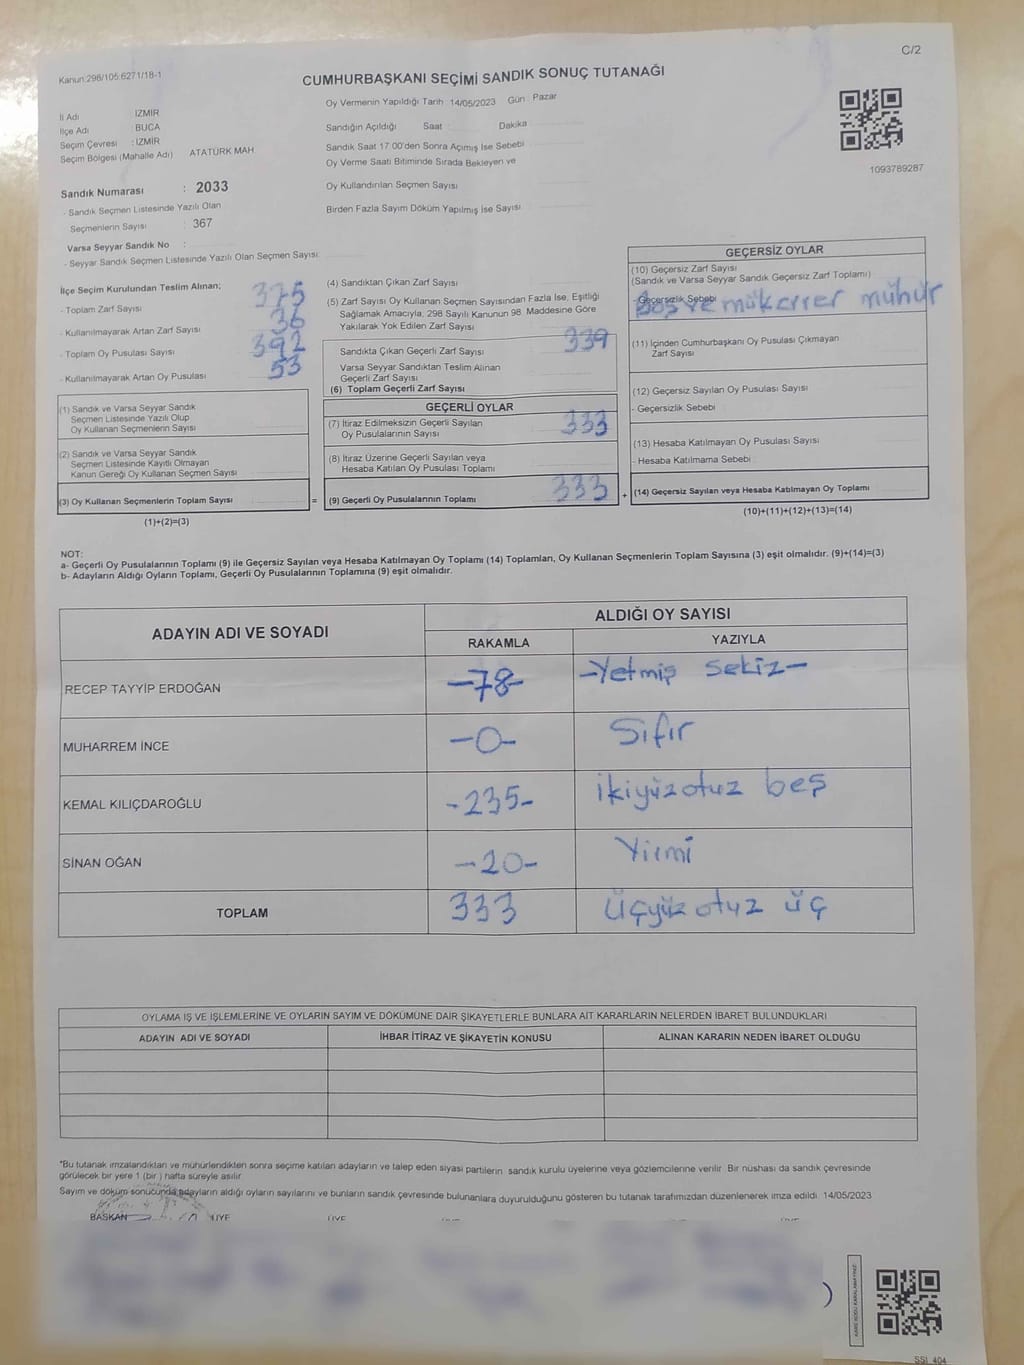 C/2
Kanun:298/105:6271/18-1
CUMHURBAŞKANI SEÇİMİ SANDIK SONUÇ TUTANAĞI
İl Adı İZMİR
İlçe Adı BUCA
Seçim Çevresi : İZMİR
Seçim Bölgesi (Mahalle Adı) ATATÜRK MAH.
Sandık Numarası : 2033
- Sandık Seçmen Listesinde Yazılı Olan
Seçmenlerin Sayısı : 367
Varsa Seyyar Sandık No :
- Seyyar Sandık Seçmen Listesinde Yazılı Olan Seçmen Sayısı:
Oy Vermenin Yapıldığı Tarih 14/05/2023 Gün Pazar
Sandığın Açıldığı Saat Dakika
Sandık Saat 17.00'den Sonra Açımış İse Sebebi
Oy Verme Saati Bitiminde Sırada Bekleyen ve
Oy Kullandırılan Seçmen Sayısı
Birden Fazla Sayım Döküm Yapılmış İse Sayısı
1093789287
İlçe Seçim Kurulundan Teslim Alınan;
- Toplam Zarf Sayısı 375
- Kullanılmayarak Artan Zarf Sayısı 36
- Toplam Oy Pusulası Sayısı 392
- Kullanılmayarak Artan Oy Pusulası 53
(1) Sandık ve Varsa Seyyar Sandık
Seçmen Listesinde Yazılı Olup
Oy Kullanan Seçmenlerin Sayısı
(2) Sandık ve Varsa Seyyar Sandık
Seçmen Listesinde Kayıtlı Olmayan
Kanun Gereği Oy Kullanan Seçmen Sayısı
(3) Oy Kullanan Seçmenlerin Toplam Sayısı
(1)+(2)=(3)
(4) Sandıktan Çıkan Zarf Sayısı
(5) Zarf Sayısı Oy Kullanan Seçmen Sayısından Fazla İse, Eşitliği
Sağlamak Amacıyla, 298 Sayılı Kanunun 98. Maddesine Göre
Yakılarak Yok Edilen Zarf Sayısı
Sandıkta Çıkan Geçerli Zarf Sayısı 339
Varsa Seyyar Sandıktan Teslim Alınan
Geçerli Zarf Sayısı
(6) Toplam Geçerli Zarf Sayısı
GEÇERLİ OYLAR
(7) İtiraz Edilmeksizin Geçerli Sayılan
Oy Pusulalarının Sayısı 333
(8) İtiraz Üzerine Geçerli Sayılan veya
Hesaba Katılan Oy Pusulası Toplamı
= (9) Geçerli Oy Pusulalarının Toplamı 333 +
GEÇERSİZ OYLAR
(10) Geçersiz Zarf Sayısı
(Sandık ve Varsa Seyyar Sandık Geçersiz Zarf Toplamı)
- Geçersizlik Sebebi
Boş ve mükerrer mühür
(11) İçinden Cumhurbaşkanı Oy Pusulası Çıkmayan
Zarf Sayısı
(12) Geçersiz Sayılan Oy Pusulası Sayısı
- Geçersizlik Sebebi
(13) Hesaba Katılmayan Oy Pusulası Sayısı
- Hesaba Katılmama Sebebi
(14) Geçersiz Sayılan veya Hesaba Katılmayan Oy Toplamı
(10)+(11)+(12)+(13)=(14)
NOT:
a- Geçerli Oy Pusulalarının Toplamı (9) ile Geçersiz Sayılan veya Hesaba Katılmayan Oy Toplamı (14) Toplamları, Oy Kullanan Seçmenlerin Toplam Sayısına (3) eşit olmalıdır. (9)+(14)=(3)
b- Adayların Aldığı Oyların Toplamı, Geçerli Oy Pusulalarının Toplamına (9) eşit olmalıdır.
ADAYIN ADI VE SOYADI ALDIĞI OY SAYISI
RAKAMLA YAZIYLA
RECEP TAYYİP ERDOĞAN -78- -Yetmiş sekiz-
MUHARREM İNCE -0- Sıfır
KEMAL KILIÇDAROĞLU -235- ikiyüzotuz beş
SİNAN OĞAN -20- Yirmi
TOPLAM 333 Üçyüz otuz üç
OYLAMA İŞ VE İŞLEMLERİNE VE OYLARIN SAYIM VE DÖKÜMÜNE DAİR ŞİKAYETLERLE BUNLARA AİT KARARLARIN NELERDEN İBARET BULUNDUKLARI
ADAYIN ADI VE SOYADI İHBAR İTİRAZ VE ŞİKAYETİN KONUSU ALINAN KARARIN NEDEN İBARET OLDUĞU
*Bu tutanak imzalandıktan ve mühürlendikten sonra seçime katılan adayların ve talep eden siyasi partilerin sandık kurulu üyelerine veya gözlemcilerine verilir. Bir nüshası da sandık çevresinde
görülecek bir yere 1 (bir) hafta süreyle asılır.
Sayım ve döküm sonucunda adayların aldığı oyların sayılarını ve bunların sandık çevresinde bulunanlara duyurulduğunu gösteren bu tutanak tarafımızdan düzenlenerek imza edildi. 14/05/2023
BAŞKAN ÜYE ÜYE
SSİ_404